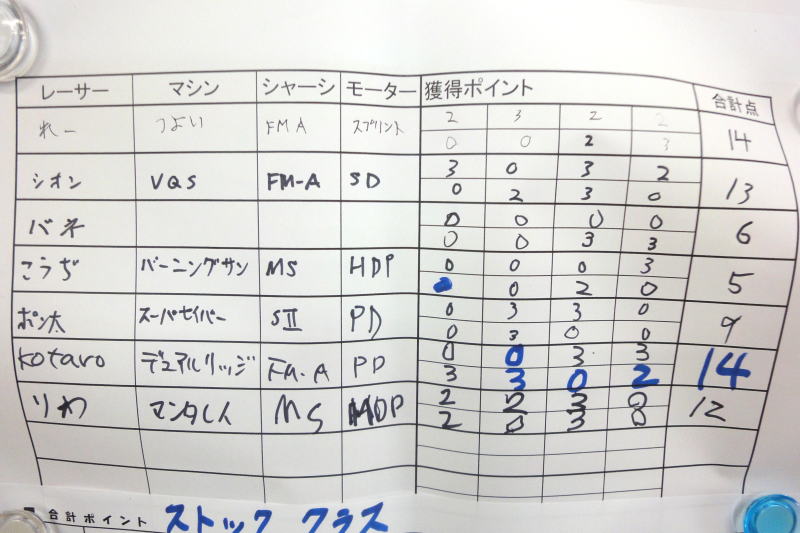 レーサー マシン シャーシ モーター 獲得ポイント 合計点
れー つよい FMA スプリント 2 3 2 2 14
0 0 2 3
シオン VQS FM-A SD 3 0 3 2 13
0 2 3 0
バネ 0 0 0 0 6
0 0 3 3
こうぢ バーニングサン MS HDP 0 0 0 3 5
0 2 0
ポン太 スーパーセイバー SII PD 0 3 3 0 9
0 3 0 0
kotaro デュアルリッジ FM-A PD 0 0 3 3 14
3 3 0 2
りわ マンタレイ MS HDP 2 2 2 0 12
2 0 3 0
合計ポイント ストック クラス